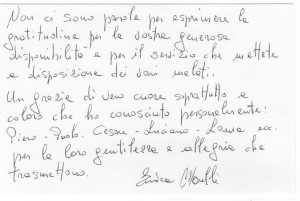 Non ci sono parole per esprimere la
gratitudine per la vostra generosa
disponibilità e per il servizio che mettete
a disposizione dei vari malati.
Un grazie di vero cuore soprattutto a
coloro che ho conosciuto personalmente:
Piero - Paolo - Cesare - Luciano - Laura ecc.
per la loro gentilezza e allegria che
trasmettono.